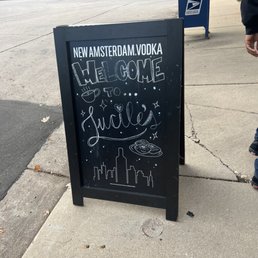 NEW AMSTERDAM.VODKA
WELCOME
TO...
Lucile's